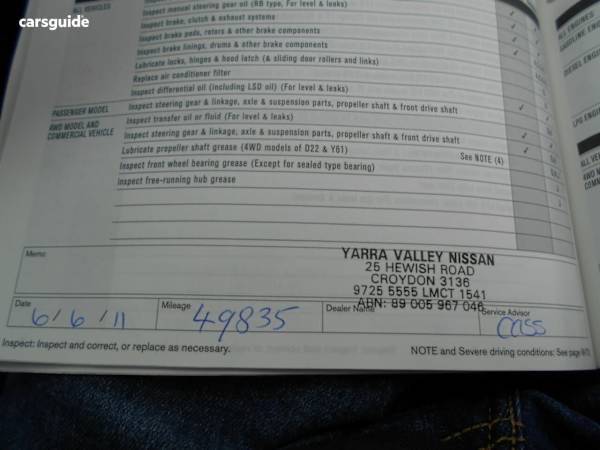 carsguide
ALL VEHICLES
Inspect manual steering gear oil (RB type, For level & leaks)
Inspect brake, clutch & exhaust systems
Inspect brake pads, rotors & other brake components
Inspect brake linings, drums & other brake components
Lubricate locks, hinges & hood latch (& sliding door rollers and links)
Replace air conditioner filter
Inspect differential oil (including LSD oil) (For level & leaks)
PASSENGER MODEL Inspect steering gear & linkage, axle & suspension parts, propeller shaft & front drive shaft
4WD MODEL AND COMMERCIAL VEHICLE
Inspect transfer oil or fluid (For level & leaks)
Inspect steering gear & linkage, axle & suspension parts, propeller shaft & front drive shaft
Lubricate propeller shaft grease (4WD models of D22 & Y61) See NOTE (4)
Inspect front wheel bearing grease (Except for sealed type bearing)
Inspect free-running hub grease
ALL ENGINES
GASOLINE
DIESEL
LPG
Memo:
YARRA VALLEY NISSAN
25 HEWISH ROAD
CROYDON 3136
9725 5555 LMCT 1541
ABN: 89 005 967 046
Date 6/6/11 Mileage 49835 Dealer Name Service Advisor CASS
Inspect: Inspect and correct, or replace as necessary.
NOTE and Severe driving conditions: See page